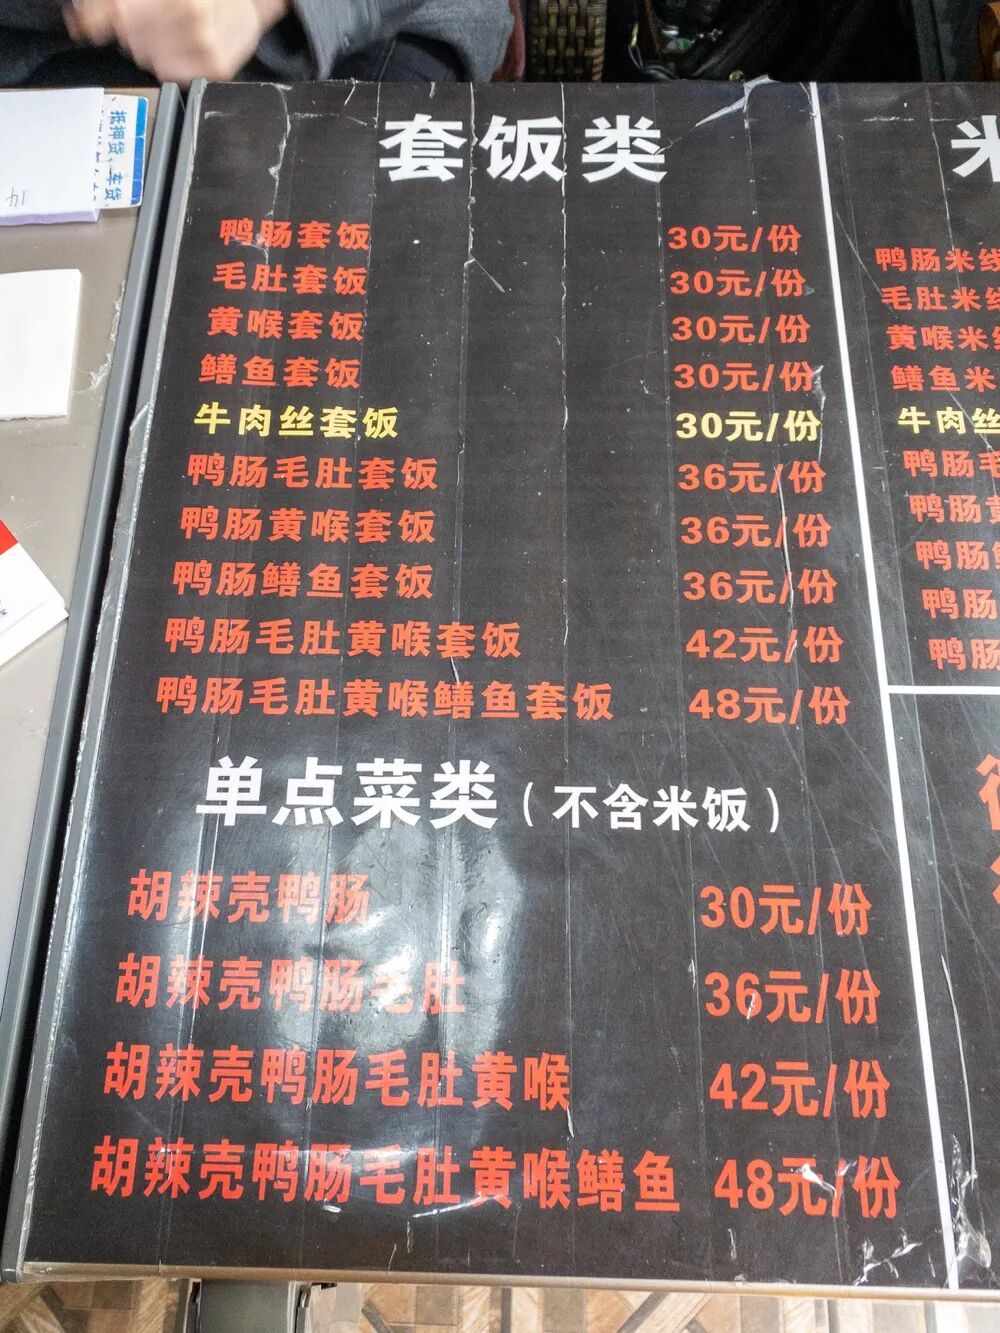 抵押贷、车贷
14
套饭类
鸭肠套饭 30元/份
毛肚套饭 30元/份
黄喉套饭 30元/份
鳝鱼套饭 30元/份
牛肉丝套饭 30元/份
鸭肠毛肚套饭 36元/份
鸭肠黄喉套饭 36元/份
鸭肠鳝鱼套饭 36元/份
鸭肠毛肚黄喉套饭 42元/份
鸭肠毛肚黄喉鳝鱼套饭 48元/份
单点菜类（不含米饭）
胡辣壳鸭肠 30元/份
胡辣壳鸭肠毛肚 36元/份
胡辣壳鸭肠毛肚黄喉 42元/份
胡辣壳鸭肠毛肚黄喉鳝鱼 48元/份
米
鸭肠米线
毛肚米线
黄喉米线
鳝鱼米
牛肉丝
鸭肠毛
鸭肠黄
鸭肠
鸭肠
鸭肠